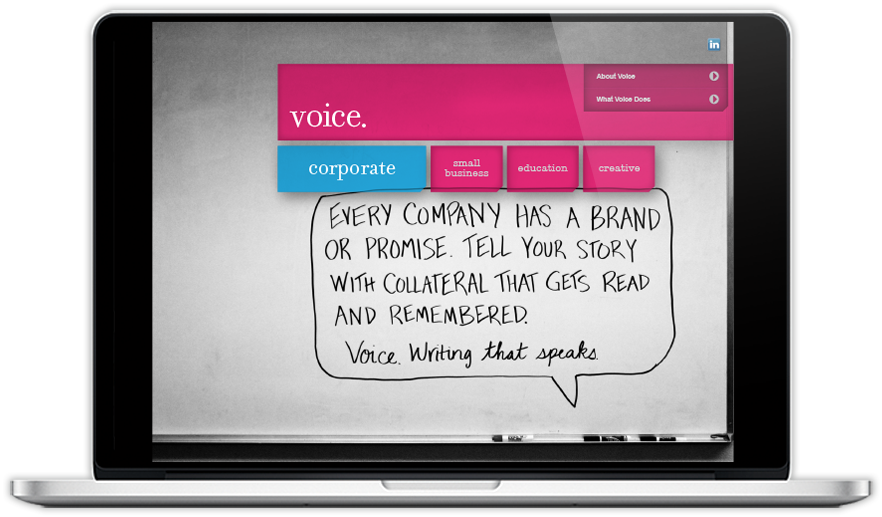 in
About Voice
What Voice Does
voice.
corporate
small
business
education
creative
EVERY COMPANY HAS A BRAND
OR PROMISE. TELL YOUR STORY
WITH COLLATERAL THAT GETS READ
AND REMEMBERED.
Voice. Writing that speaks.